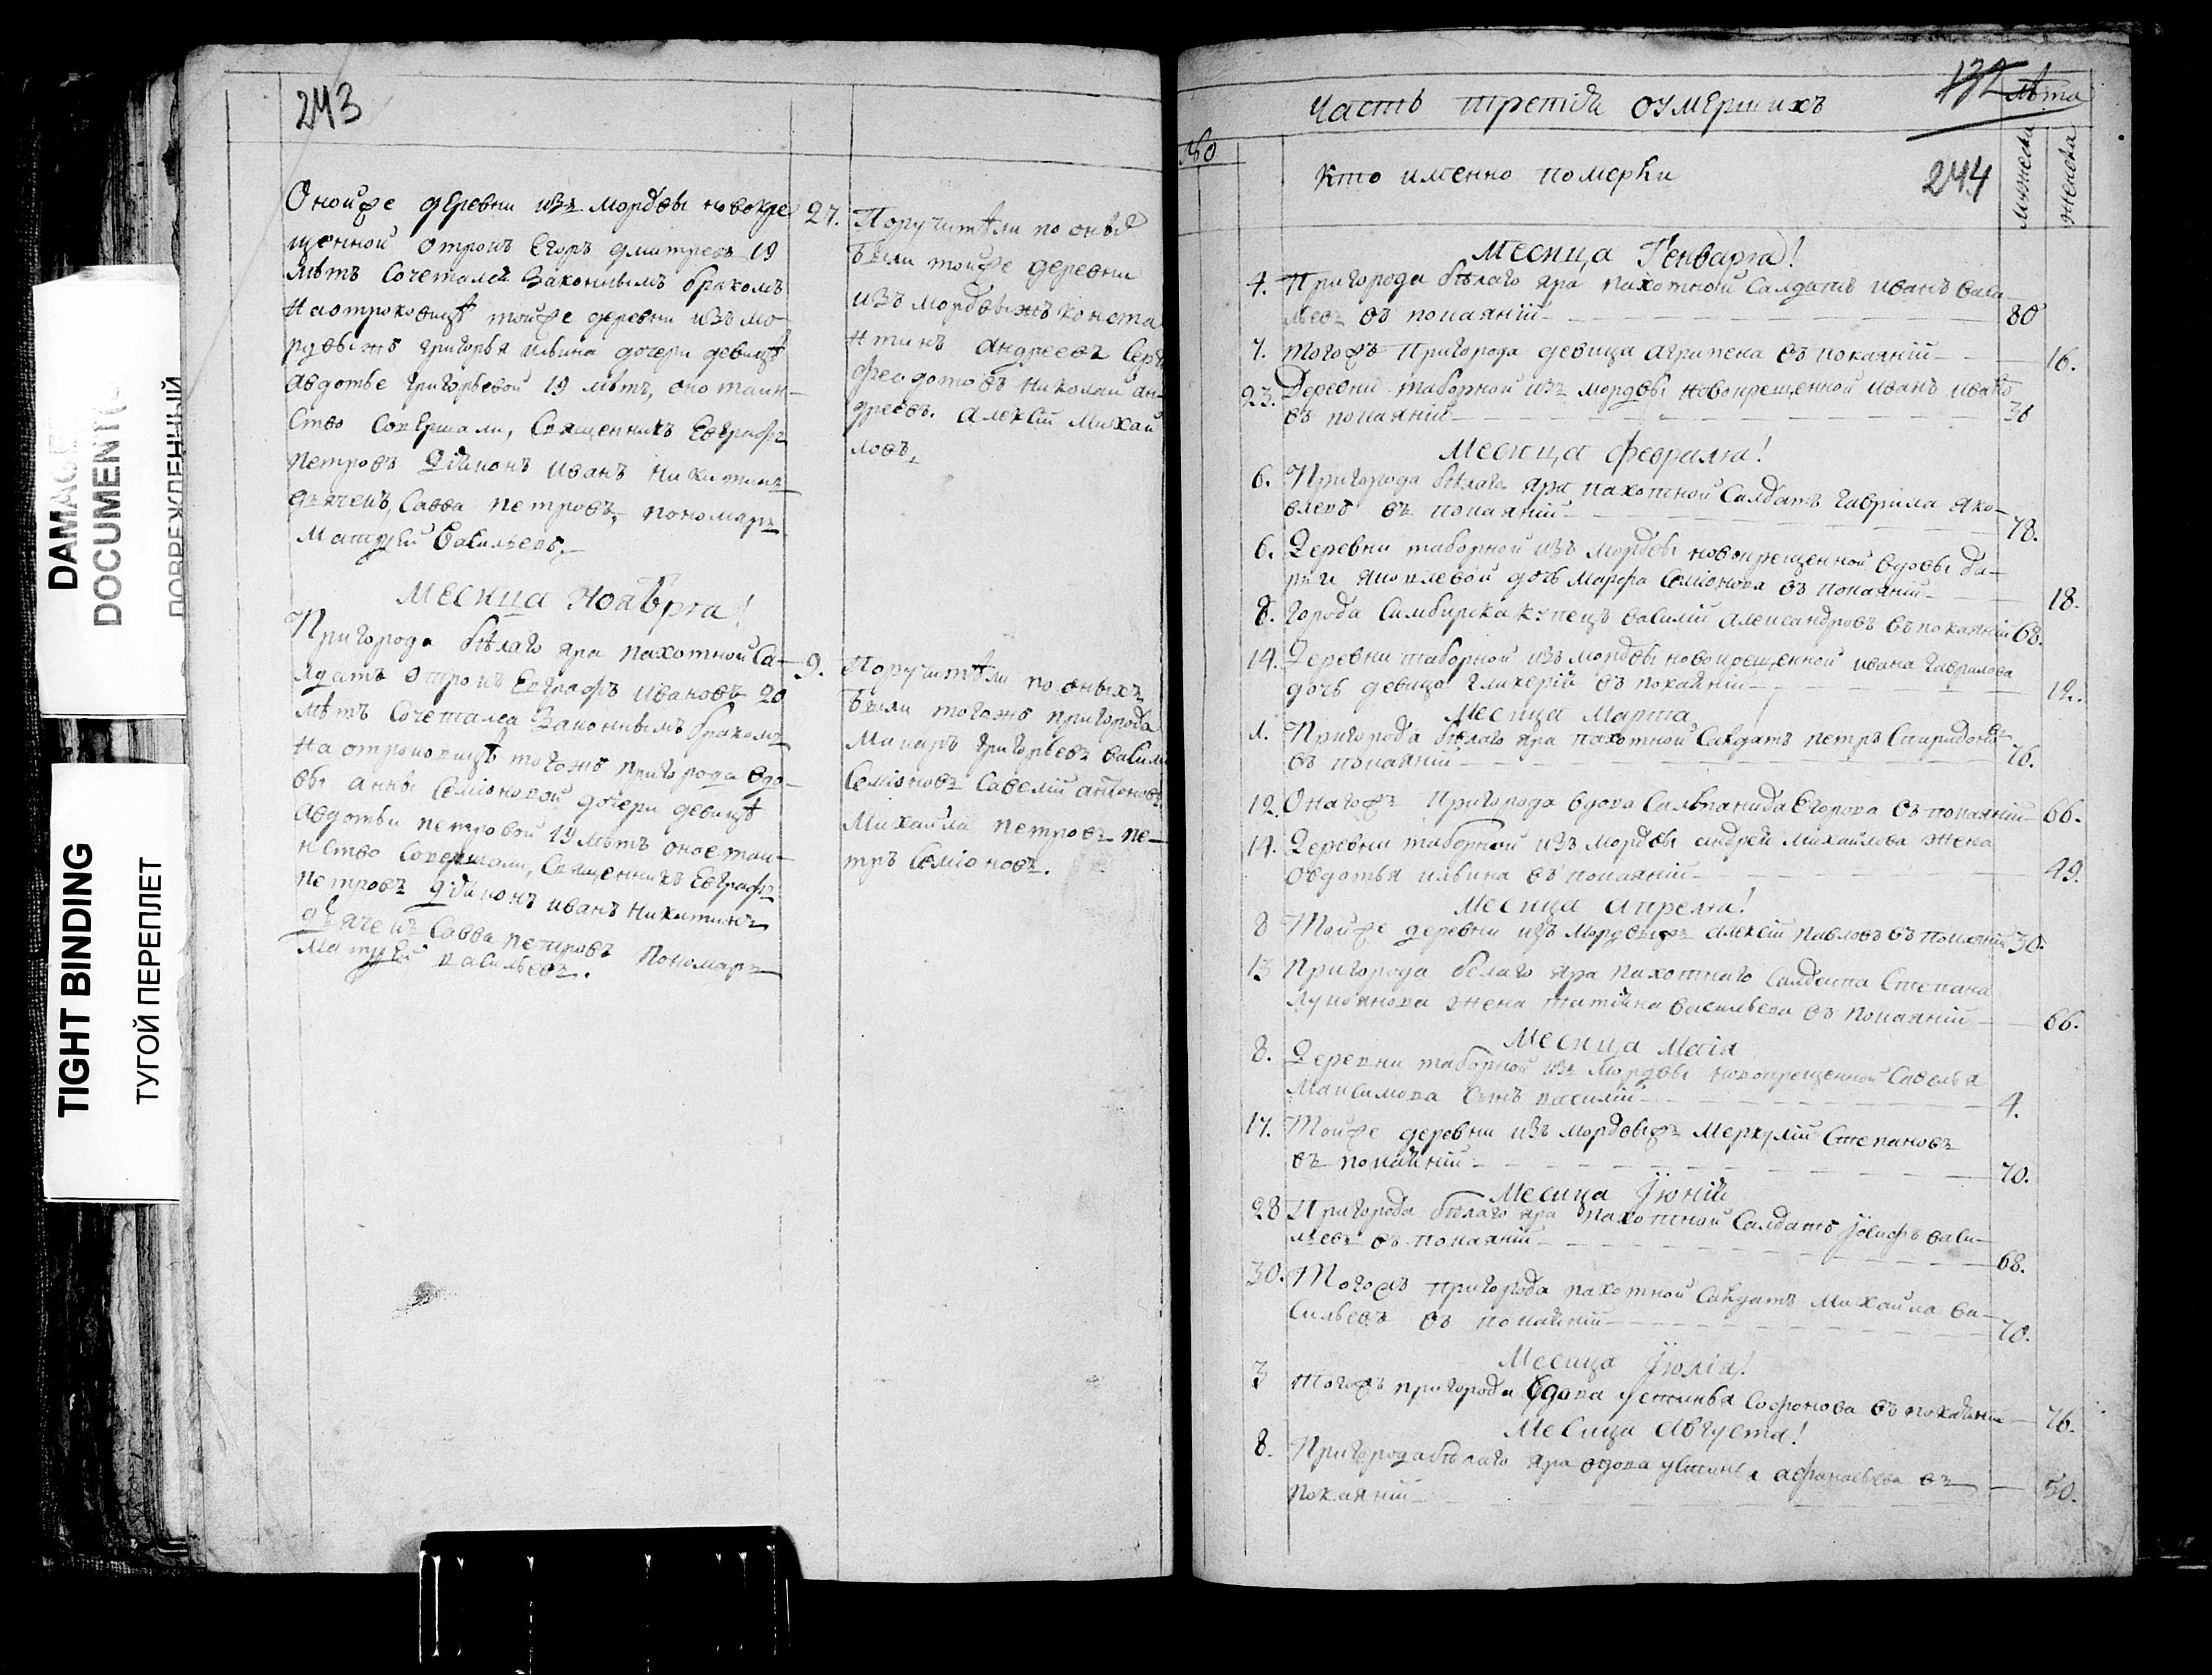 DAMAGE
DOCUMENT(
ПОВРЕЖДЕННЫЙ
TIGHT BINDING
ТУГОЙ ПЕРЕПЛЕТ
243
Онойже деревни изъ мордвы новокре
щенной отрокъ Егоръ дмитревъ 19
лѣтъ сочетался законнымъ бракомъ
на отроковицѣ тойже деревни изъ мо-
рдвыжъ григорья ильина дочери девицѣ
авдотье григорьевой 19 лѣтъ, оно таин-
ство совершали, священникъ Евграфъ
петровъ діаконъ иванъ никитинъ
дьячекъ, савва петровъ, пономарь
матфей васильевъ.
27. Поручитѣли по оныя
были тойже деревни
изъ мордвыжъ конста
нтинъ андреевъ
феодотовъ николай ан-
дреевъ. алексій михай
ловъ,
Месица Ноября!
Пригорода бѣлаго яра пахотной са-
лдатъ отрокъ Евграфъ ивановъ 20
лѣтъ сочеталса законнымъ бракомъ
на отроковицѣ тогожъ пригорода вдо-
вы анны семіоновой дочери девицѣ
авдотьи петровой 19 лѣтъ оное таи-
нство совершали, священникъ Евграфъ
петровъ діаконъ иванъ никитинъ
дьячекъ савва петровъ пономарь
матфей васильевъ.
9. Поручитѣли по оныхъ
были тогожъ пригорода
макаръ григорьевъ васили
семіоновъ савелій антоновъ
михайла петровъ пе-
тръ семіоновъ.
132 лѣта
Часть третія оумершихъ
№
Кто именно померли
244
мужеска
женска
Месица Генваря!
4. Пригорода бѣлаго яра пахотной салдатъ иванъ васи-
льевъ въ покаяніи 80
7. тогожъ пригорода девица агрипена въ покаяніи 16.
23. Деревни таборной изъ мордвы новокрещенной иванъ ивано
въ покаяніи 36
Месица февраля!
6. Пригорода бѣлаго яра пахотной салдатъ гаврила яко-
влевъ въ покаяніи 78.
6. Деревни таборной изъ мордвы новокрещенной вдовы да-
рьи яковлевой дочь марфа семіонова въ покаяніи 18.
8. города симбирска купецъ василій александровъ въ покаяніи 68.
14. Деревни таборной изъ мордвы новокрещенной ивана гаврилова
дочь девица гликерія въ покаяніи 12.
Месица Марта
1. Пригорода бѣлаго яра пахотной салдатъ петръ спиридоновъ
въ покаяніи 76.
12. Онагожъ пригорода вдова Егорова въ покаяніи 66.
14. Деревни таборной изъ мордвы андрей михайлова жена
овдотья ильина въ покаяніи 49.
Месица апреля!
8 Тойже деревни изъ мордвыжъ алексій павловъ въ покаяніи 30.
13 Пригорода белаго яра пахотнаго салдата степана
лукоянова жена татіяна васильева въ покаяніи 66.
Месица Маія
8. Деревни таборной изъ мордвы новокрещенной савелья
максимова сынъ василій 4.
17. Тойже деревни изъ мордвыжъ меркулій степановъ
въ покаяніи 70.
Месица Іюній
28 Пригорода бѣлаго яра пахотной салдатъ іосифъ васи-
льевъ въ покаяніи 68.
30. Тогожъ пригорода пахотной салдатъ михайла ва-
сильевъ въ покаяніи 70.
Месица Іюлія!
3 тогожъ пригорода вдова устинья софонова въ покаяніи 76.
Месица августа!
8. Пригорода бѣлаго яра вдова устинья афанасьева въ
покаяніи 50.